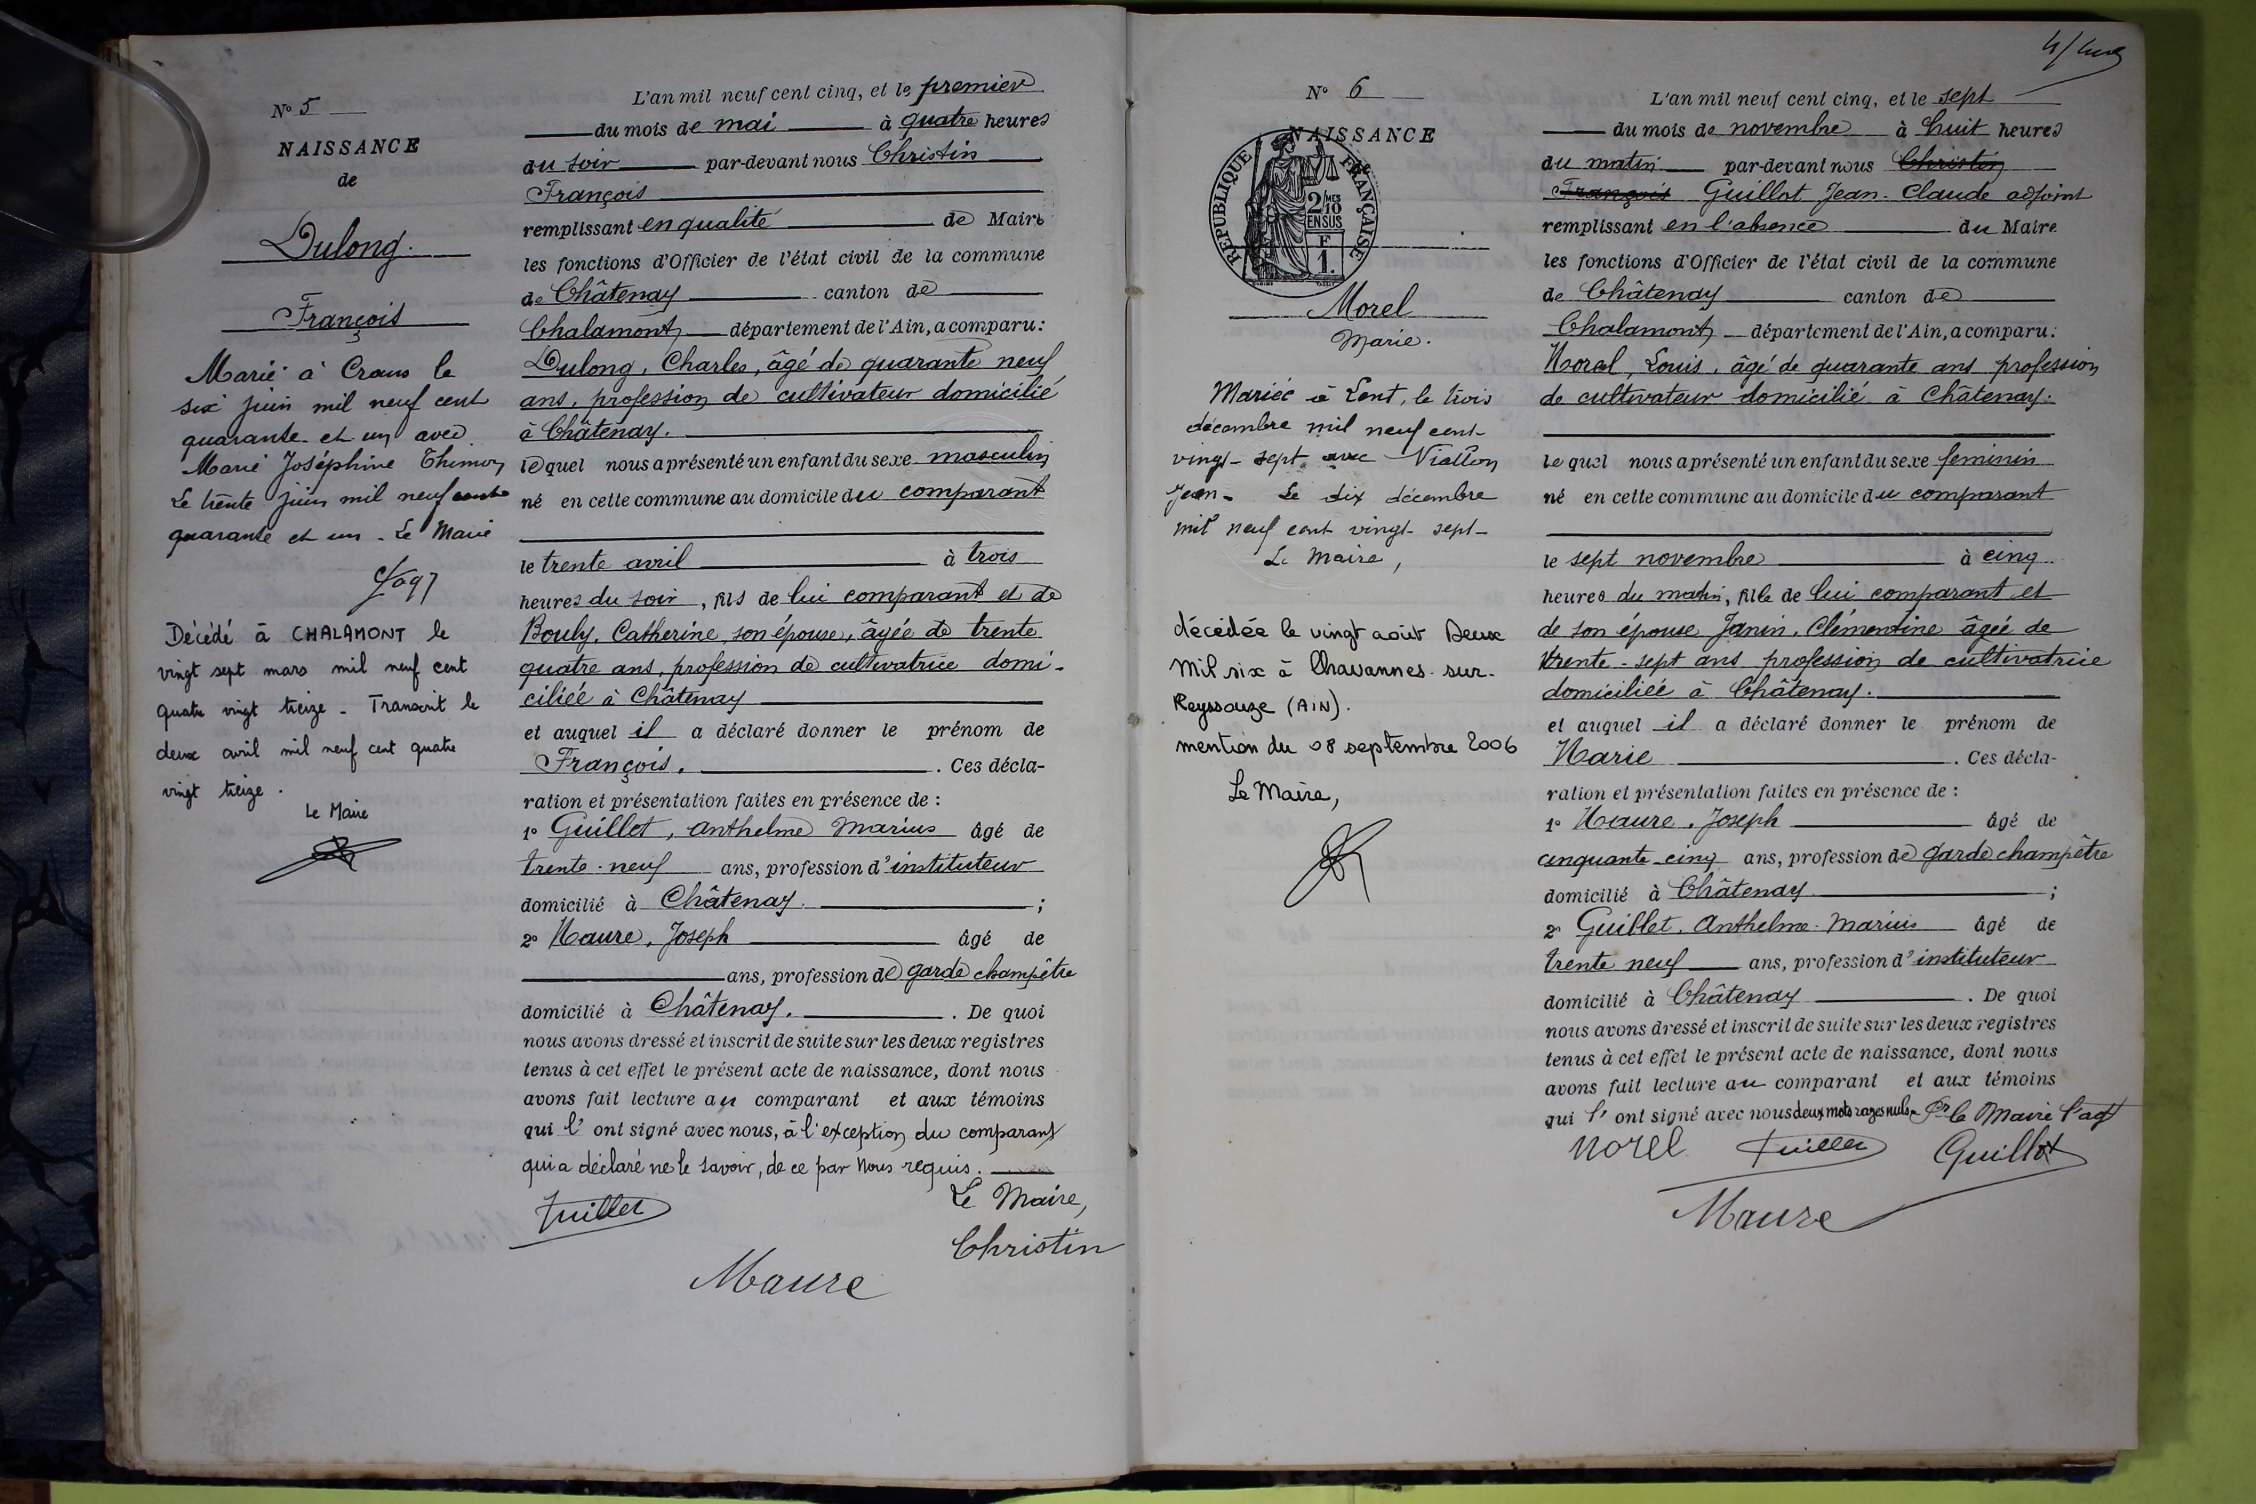 N° 5
NAISSANCE
de
Dulong.
François
Marié à Crans le
six juin mil neuf cent
quarante et un avec
Marie Joséphine Thimon
Le trente juin mil neuf cent
quarante et un - Le Maire
Décédé à CHALAMONT le
vingt sept mars mil neuf cent
quatre vingt treize - Transcrit le
deux avril mil neuf cent quatre
vingt treize.
Le Maire
L'an mil neuf cent cinq, et le premier
du mois de mai à quatre heures
du soir par-devant nous Christin
François
remplissant en qualité de Maire
les fonctions d'Officier de l'état civil de la commune
de Châtenay canton de
Chalamont département de l'Ain, a comparu:
Dulong, Charles, âgé de quarante neuf
ans, profession de cultivateur domicilié
à Châtenay.
le quel nous a présenté un enfant du sexe masculin
né en cette commune au domicile du comparant
le trente avril à trois
heures du soir, fils de lui comparant et de
Bouly, Catherine, son épouse, âgée de trente
quatre ans, profession de cultivatrice domi-
ciliée à Châtenay
et auquel il a déclaré donner le prénom de
François. . Ces décla-
ration et présentation faites en présence de :
1° Guillet, Anthelme Marius âgé de
trente-neuf ans, profession d'instituteur
domicilié à Châtenay. ;
2° Maure, Joseph âgé de
ans, profession de garde champêtre
domicilié à Châtenay. . De quoi
nous avons dressé et inscrit de suite sur les deux registres
tenus à cet effet le présent acte de naissance, dont nous
avons fait lecture au comparant et aux témoins
qui l' ont signé avec nous, à l'exception du comparant
qui a déclaré ne le savoir, de ce par nous requis.
Guillet
Le Maire,
Christin
Maure
4/
N° 6
NAISSANCE
RÉPUBLIQUE FRANÇAISE
2/10MES
EN SUS
F
1.
Morel
Marie.
Mariée à Lent, le trois
décembre mil neuf cent
vingt-sept avec Viallon
Jean - Le dix décembre
mil neuf cent vingt-sept-
Le Maire,
décédée le vingt août Deux
Mil six à Chavannes-sur-
Reyssouze (AIN).
mention du 08 septembre 2006
Le Maire,
L'an mil neuf cent cinq, et le sept
du mois de novembre à huit heures
du matin par-devant nous Christin
François Guillot Jean-Claude adjoint
remplissant en l'absence du Maire
les fonctions d'Officier de l'état civil de la commune
de Châtenay canton de
Chalamont département de l'Ain, a comparu:
Morel, Louis, âgé de quarante ans profession
de cultivateur domicilié à Châtenay.
le quel nous a présenté un enfant du sexe féminin
né en cette commune au domicile du comparant
le sept novembre à cinq
heures du matin, fille de lui comparant et
de son épouse Janin, Clémentine âgée de
trente-sept ans profession de cultivatrice
domiciliée à Châtenay.
et auquel il a déclaré donner le prénom de
Marie . Ces décla-
ration et présentation faites en présence de :
1° Maure, Joseph âgé de
cinquante-cinq ans, profession de garde champêtre
domicilié à Châtenay ;
2° Guillet, Anthelme-Marius âgé de
trente neuf ans, profession d'instituteur
domicilié à Châtenay . De quoi
nous avons dressé et inscrit de suite sur les deux registres
tenus à cet effet le présent acte de naissance, dont nous
avons fait lecture au comparant et aux témoins
qui l' ont signé avec nous deux mots rayés nuls. Pr le Maire l'adj
Morel Guillet Guillot
Maure